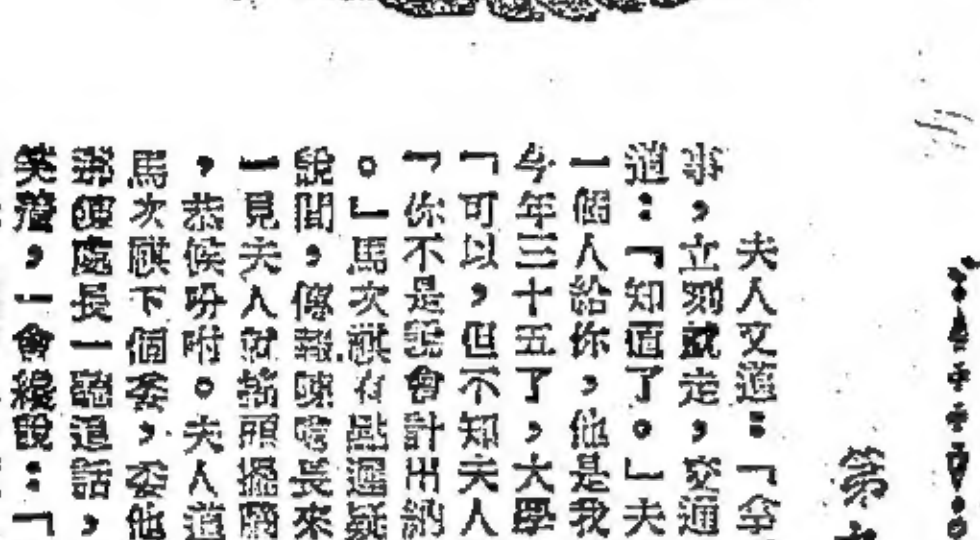 第
夫人又道：「
事，立刻就走，交通
道：「知道了。」夫
一個人給你，他是我
今年三十五了，大學
「可以，但不知夫人
「你不是說會計出納
。」馬次祺有點遲疑
說間，傳報陳處長來
一見夫人就
，恭候吩咐。夫人道
馬次祺下個委，委他
處長一聽這話，
笑着，一會纔說：「